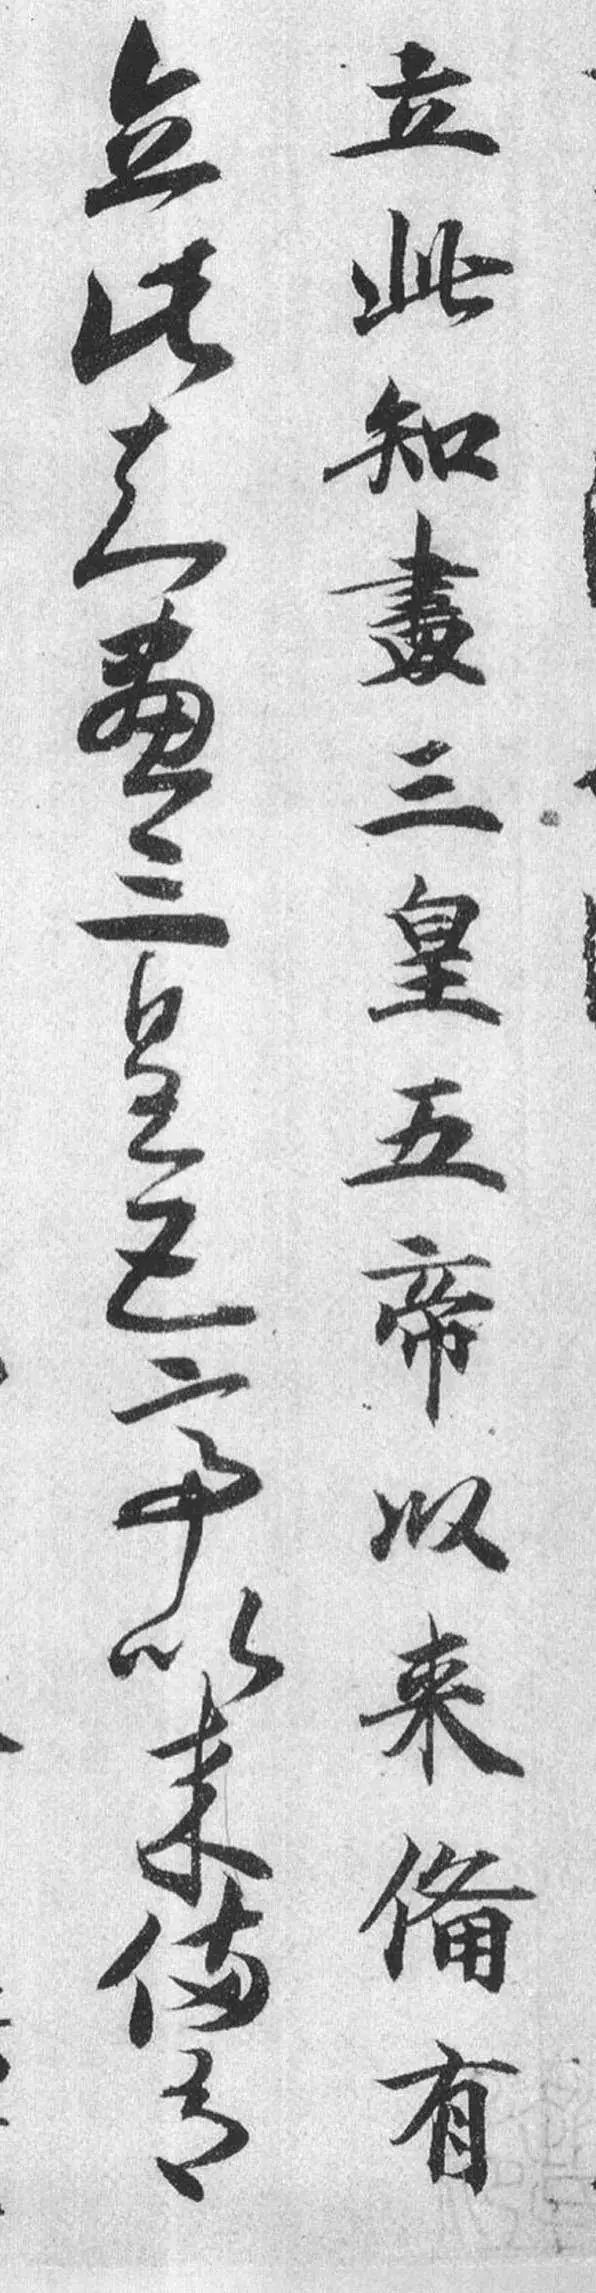 立此知畫三皇五帝以来俻有
立此知畫三皇五帝以来俻有